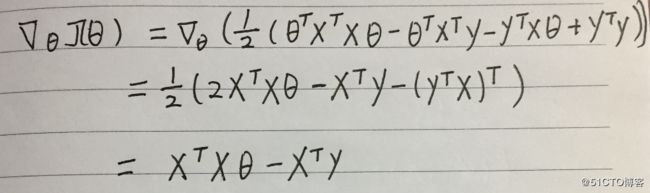 ∇θJ(θ) = ∇θ(½(θᵀXᵀXθ-θᵀXᵀy-yᵀXθ+yᵀy))
= ½(2XᵀXθ-Xᵀy-(yᵀX)ᵀ)
= XᵀXθ-Xᵀy
@51CTO博客